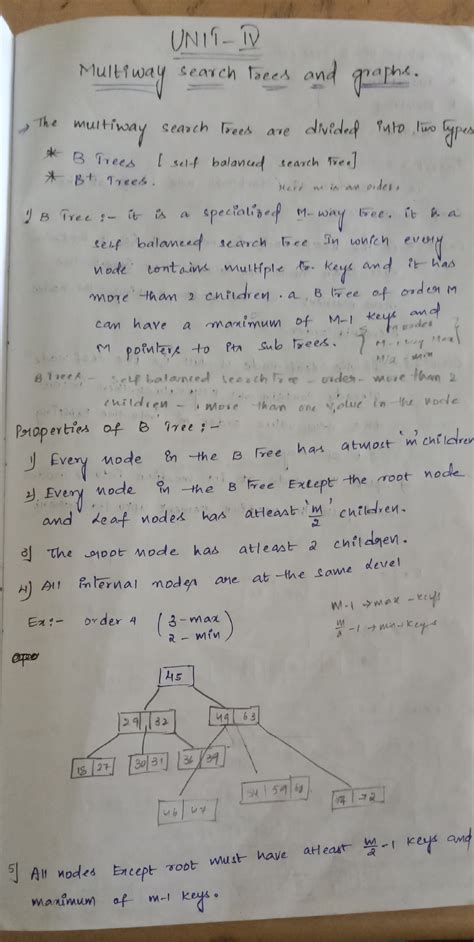 UNIT-IV
Multiway search Trees and graphs.
→ The multiway search Trees are divided into two types
* B Trees [self balanced search Tree]
* B+ Trees.
Here m is an order.
1) B Tree :- it is a specialized M-way tree. it is a
self balanced search tree in which every
node contains multiple keys and it has
more than 2 children. a B tree of order M
can have a maximum of M-1 keys and
M pointers to its sub trees.
order
M-1 key Max
M/2 - min
B Trees - self balanced search tree - order - more than 2
children - more than one value in the node
Properties of B Tree :-
1) Every node in the B Tree has atmost 'm' children
2) Every node in the B Tree Except the root node
and Leaf nodes has atleast 'm/2' children.
3) The root node has atleast 2 children.
4) All internal nodes are at the same level
M-1 → max - keys
m/2 - 1 → min - keys
Ex:- order 4 (3-max
2-min)
45
29 32
49 63
18 27
30 31
36 39
46 47
54 59
72
5) All nodes Except root must have atleast m/2 -1 keys and
maximum of m-1 keys.